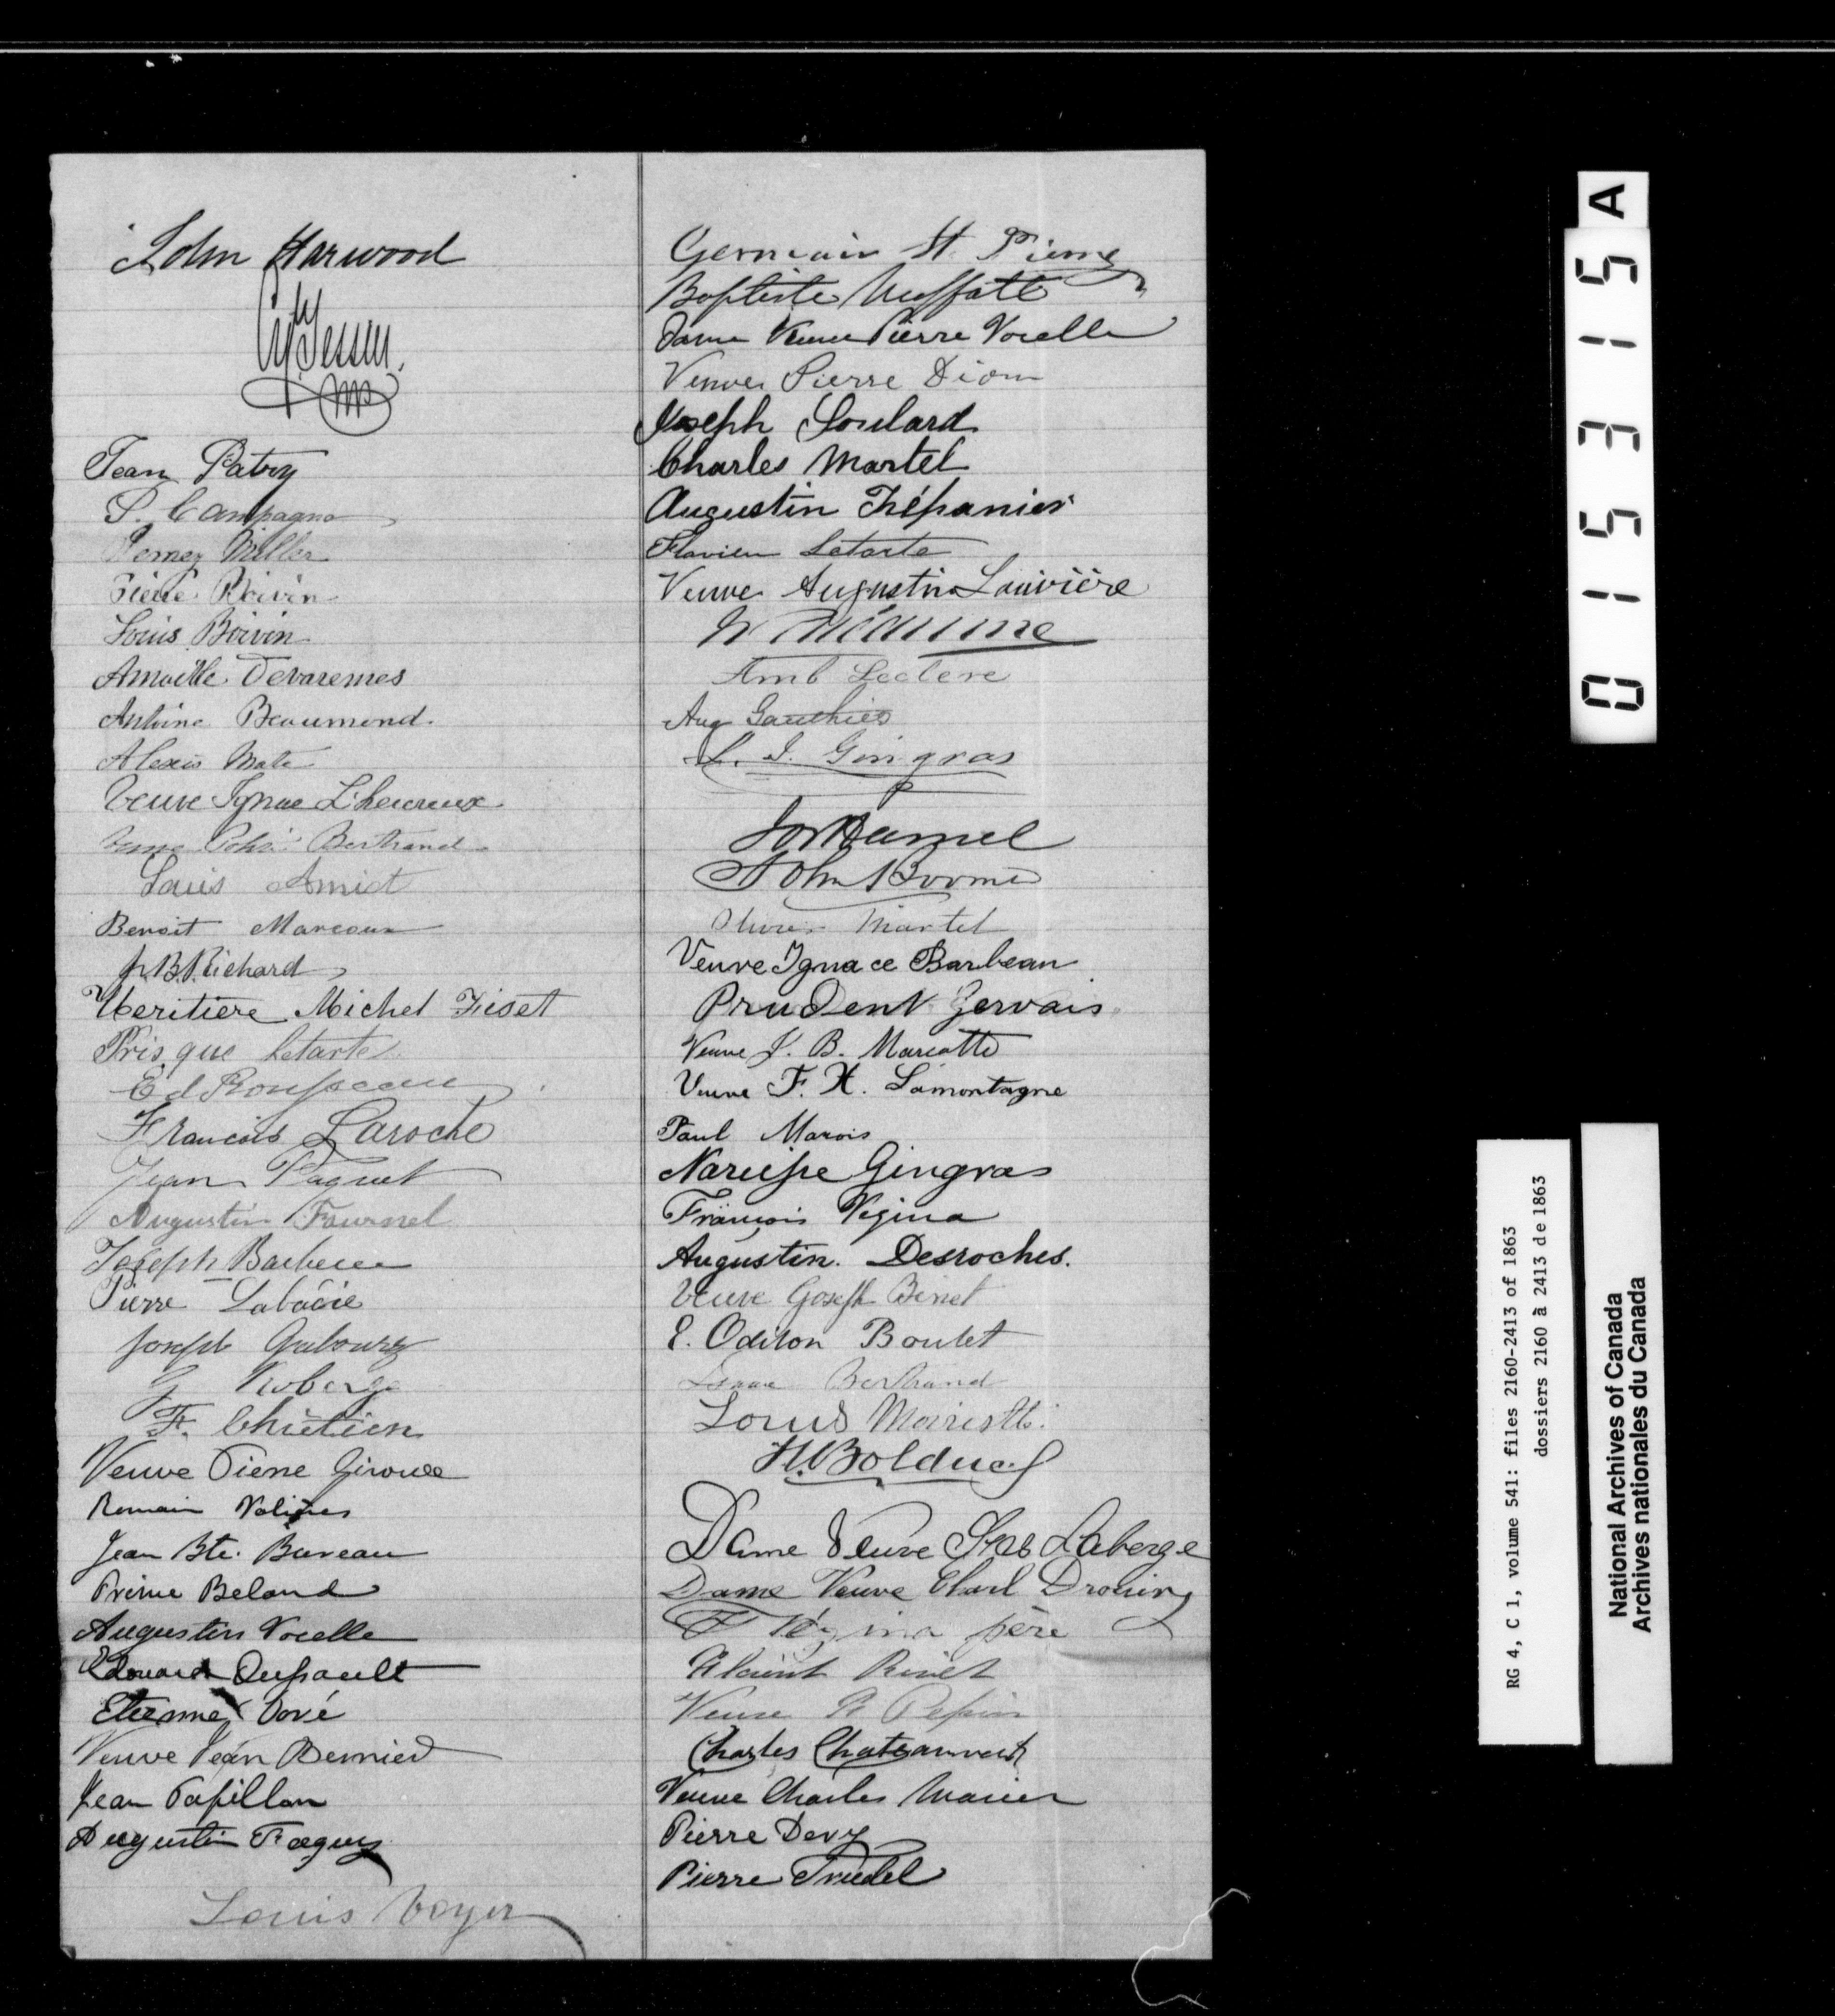 John Harwood
Jean Patry
P. Campagna
Miller
Boivin
Louis Boivin
Devarennes
Antoine Beaumond.
Alexis Mate
Veuve Ignace L'heureux
Bertrand
Louis Amiot
Benoit Marcoux
J. B. Richard
Heritiere Michel Fiset
Prisque Letarte
Ed Rousseau
Francois Laroche
Jean Paquet
Augustin Fournel
Joseph Barbeau
Pierre Labadie
Joseph Gabourg
G Roberge
F. Chrétien
Veuve Pierre Girouse
Romain Valieres
Jean Bte. Bureau
Prime Beland
Augustin Vocelle
Edouard Dussault
Etienne Doré
Veuve Jean Bernier
Jean Papillon
Augustin Faguy
Louis Voyer
Germain St. Pierre
Baptiste Muffatt
Dame Veuve Pierre Vocelle
Veuve Pierre Dion
Joseph Soulard
Charles Martel
Augustin Trépanier
Flavien Letarte
Veuve Augustin Larivière
Amb Leclerc
Aug Gauthier
L. J. Gingras
Jos Hamel
John Boomer
Olivier Martel
Veuve Ignace Barbeau
PruDent Gervais.
Veuve J. B. Marcotte
Veuve F. X. Lamontagne
Paul Marois
Narcisse Gingras
François Vezina
Augustin. Desroches.
Veuve Joseph Binet
E. Odilon Boulet
Isaac Bertrand
Louis
H. Bolduc
Dame Veuve Laberge
Dame Veuve Charl Drouin
F Vézina père
Binet
Veuve Pepin
Charles Chateauvert
Veuve Charles Marier
Pierre Devy
Pierre Trudel
015315 A
RG 4, C 1, volume 541: files 2160-2413 of 1863
dossiers 2160 à 2413 de 1863
National Archives of Canada
Archives nationales du Canada